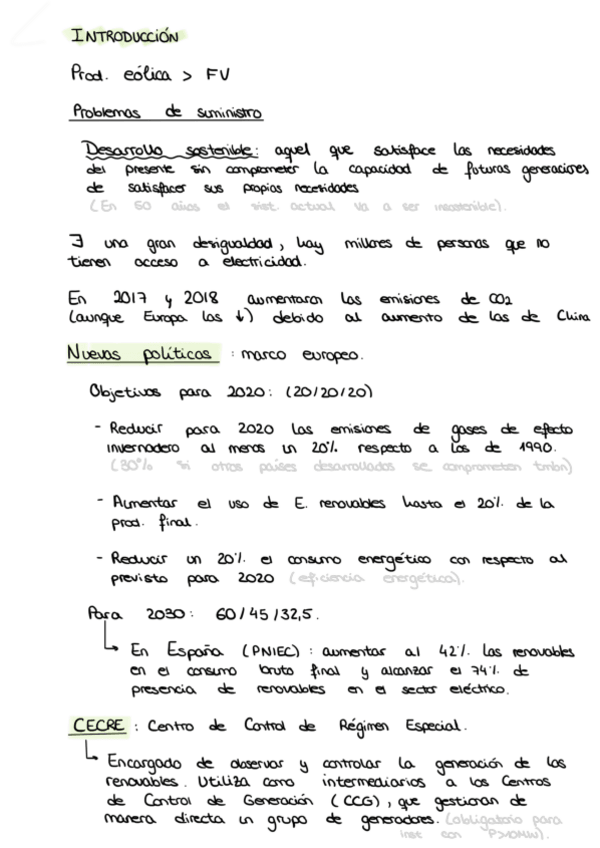 INTRODUCCIÓN
Prod. eólica > FV
Problemas de suministro
Desarrollo sostenible: aquel que satisface las necesidades
del presente sin comprometer la capacidad de futuras generaciones
de satisfacer sus propias necesidades
(En 50 años el sist. actual va a ser insostenible).
∃ una gran desigualdad, hay millones de personas que no
tienen acceso a electricidad.
En 2017 y 2018 aumentaron las emisiones de CO2
(aunque Europa las ↓) debido al aumento de las de China
Nuevas políticas : marco europeo.
Objetivos para 2020: (20/20/20)
- Reducir para 2020 las emisiones de gases de efecto
invernadero al menos un 20% respecto a los de 1990.
(30% si otros países desarrollados se comprometen tmbn)
- Aumentar el uso de E. renovables hasta el 20% de la
prod. final.
- Reducir un 20% el consumo energético con respecto al
previsto para 2020 (eficiencia energética).
Para 2030: 60/45/32,5.
↳ En España (PNIEC): aumentar al 42% las renovables
en el consumo bruto final y alcanzar el 74% de
presencia de renovables en el sector eléctrico.
CECRE : Centro de Control de Régimen Especial.
↳ Encargado de observar y controlar la generación de las
renovables. Utiliza como intermediarios a los Centros
de Control de Generación (CCG), que gestionan de
manera directa un grupo de generadores. (obligatorio para
inst con P>10MW).